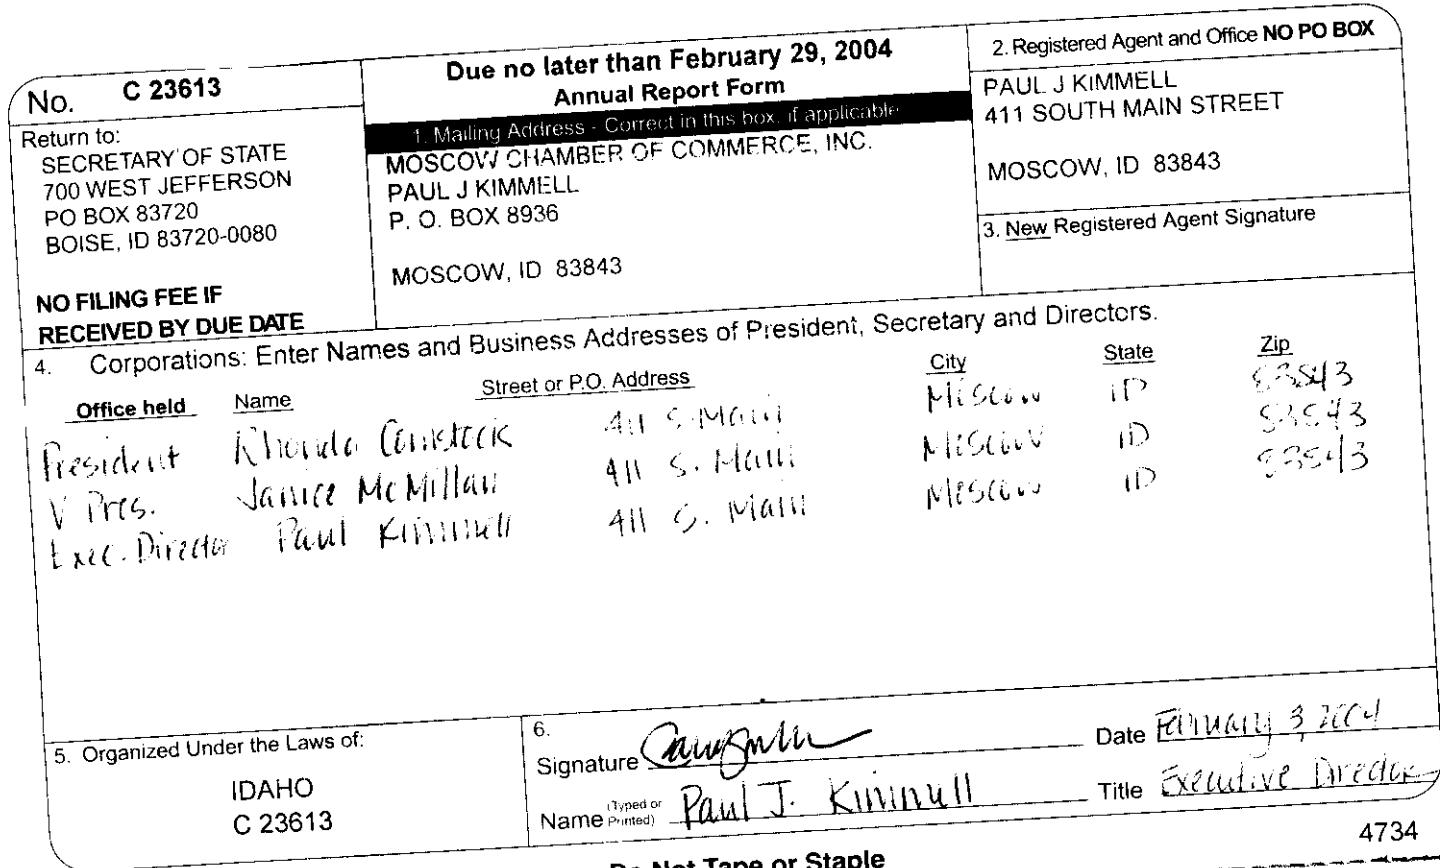 No. C 23613
Return to:
SECRETARY OF STATE
700 WEST JEFFERSON
PO BOX 83720
BOISE, ID 83720-0080
NO FILING FEE IF
RECEIVED BY DUE DATE
Due no later than February 29, 2004
Annual Report Form
1. Mailing Address - Correct in this box, if applicable
MOSCOW CHAMBER OF COMMERCE, INC.
PAUL J KIMMELL
P. O. BOX 8936
MOSCOW, ID 83843
2. Registered Agent and Office NO PO BOX
PAUL J KIMMELL
411 SOUTH MAIN STREET
MOSCOW, ID 83843
3. New Registered Agent Signature
4. Corporations: Enter Names and Business Addresses of President, Secretary and Directors.
Office held Name Street or P.O. Address City State Zip
President Rhonda Comstock 411 S. Main Moscow ID 83843
V Pres. Janice McMillan 411 S. Main Moscow ID 83843
Exec. Director Paul Kimmell 411 S. Main Moscow ID 83843
5. Organized Under the Laws of:
IDAHO
C 23613
6.
Signature Date February 3, 2004
Name (Typed or Printed) Paul J. Kimmell Title Executive Director
4734
Do Not Tape or Staple